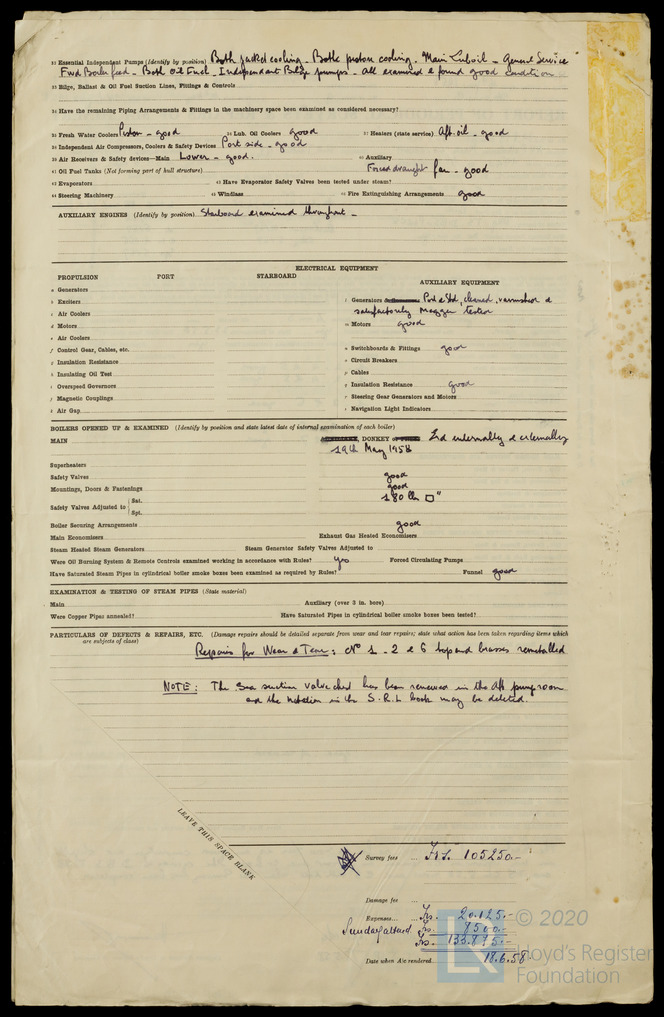 32 Essential Independent Pumps (Identify by position) Both jacket cooling - Both piston cooling. Main Lub oil - General Service
Fwd Boiler feed - Both Oil Fuel - Independant Bilge pumps - all examined & found good condition
33 Bilge, Ballast & Oil Fuel Suction Lines, Fittings & Controls
34 Have the remaining Piping Arrangements & Fittings in the machinery space been examined as considered necessary?
35 Fresh Water Coolers Piston - good 36 Lub. Oil Coolers good 37 Heaters (state service) Aft. oil - good
38 Independent Air Compressors, Coolers & Safety Devices Port side - good
39 Air Receivers & Safety devices—Main Lower - good. 40 Auxiliary
41 Oil Fuel Tanks (Not forming part of hull structure) Forced draught fan - good
42 Evaporators 43 Have Evaporator Safety Valves been tested under steam?
44 Steering Machinery 45 Windlass 46 Fire Extinguishing Arrangements good
AUXILIARY ENGINES (Identify by position) Starboard examined throughout -
ELECTRICAL EQUIPMENT
PROPULSION PORT STARBOARD
AUXILIARY EQUIPMENT
a Generators
l Generators Port & Stbd, cleaned, varnished &
b Exciters
satisfactorily Megger tested
c Air Coolers
m Motors good
d Motors
e Air Coolers
n Switchboards & Fittings good
f Control Gear, Cables, etc.
o Circuit Breakers
g Insulation Resistance
p Cables
h Insulating Oil Test
q Insulation Resistance good
i Overspeed Governors
r Steering Gear Generators and Motors
j Magnetic Couplings
s Navigation Light Indicators
k Air Gap
BOILERS OPENED UP & EXAMINED (Identify by position and state latest date of internal examination of each boiler)
MAIN DONKEY Ext internally & externally
19th May 1958
Superheaters
Safety Valves good
Mountings, Doors & Fastenings good
Safety Valves Adjusted to Sat. 180 lbs □"
Spt.
Boiler Securing Arrangements good
Main Economisers Exhaust Gas Heated Economisers
Steam Heated Steam Generators Steam Generator Safety Valves Adjusted to
Were Oil Burning System & Remote Controls examined working in accordance with Rules? Yes Forced Circulating Pumps
Have Saturated Steam Pipes in cylindrical boiler smoke boxes been examined as required by Rules? Funnel good
EXAMINATION & TESTING OF STEAM PIPES (State material)
Main Auxiliary (over 3 in. bore)
Were Copper Pipes annealed? Have Saturated Pipes in cylindrical boiler smoke boxes been tested?
PARTICULARS OF DEFECTS & REPAIRS, ETC. (Damage repairs should be detailed separate from wear and tear repairs; state what action has been taken regarding items which
are subjects of class)
Repairs for Wear & Tear: No 1 - 2 & 6 top end brasses remetalled
NOTE: The Sea suction valve chest has been renewed in the Aft pumproom
and the notation in the S.R.L book may be deleted.
LEAVE THIS SPACE BLANK
Survey fees ... Frs. 105250.-
Damage fee ...
Expenses ... Frs. 20.125.-
Frs. 8500.-
Frs. 133.875.-
Date when A/c rendered 18.6.58
© 2020
Lloyd's Register
Foundation